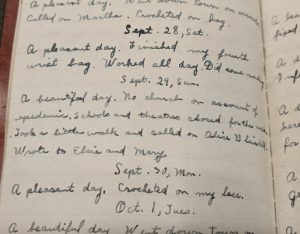 A pleasant day. Went down town on
Called on Martha. Crocheted on bag.
Sept. 28, Sat.
A pleasant day. Finished my fourth
wrist bag. Worked all day. Did some
Sept. 29, Sun.
A beautiful day. No church on account of
epidemic. Schools and theatres closed for the
Took a little walk and called on Alice
Wrote to Elsie and Mary.
Sept. 30, Mon.
A pleasant day. Crocheted on my lace.
Oct. 1, Tues.
A beautiful day. Went down town on